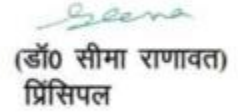 Seema
(डॉ0 सीमा राणावत)
प्रिंसिपल